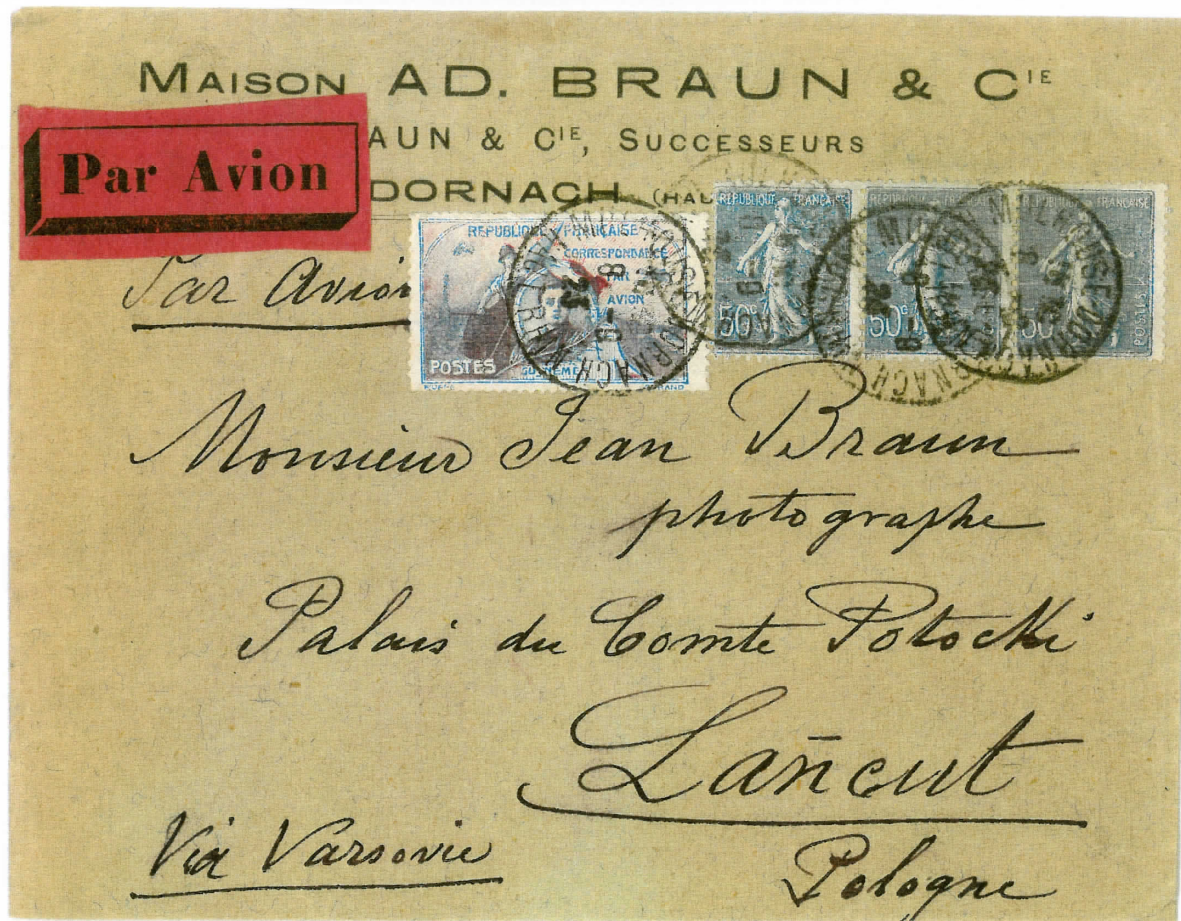 MAISON AD. BRAUN & CIE
AUN & CIE, SUCCESSEURS
DORNACH (HAU
Par Avion
Par Avion
REPUBLIQUE FRANÇAISE
CORRESPONDANCE
PAR
AVION
POSTES
REPUBLIQUE FRANÇAISE
50c
REPUBLIQUE FRANCAISE
50c
FRANÇAISE
50
POSTES
Monsieur Jean Braun
photographe
Palais du Comte Potocki
Lañcut
Via Varsovie
Pologne